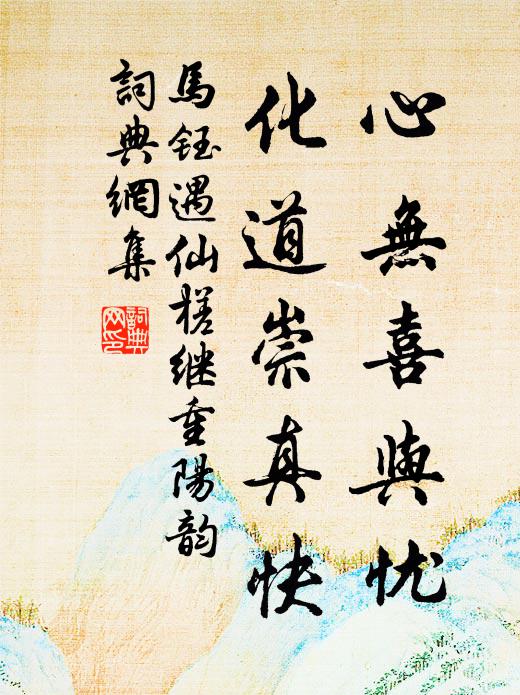 心無喜與忧
化道崇真快
馬鈺遇仙槎继重陽韵
詞典網集
詞典网印